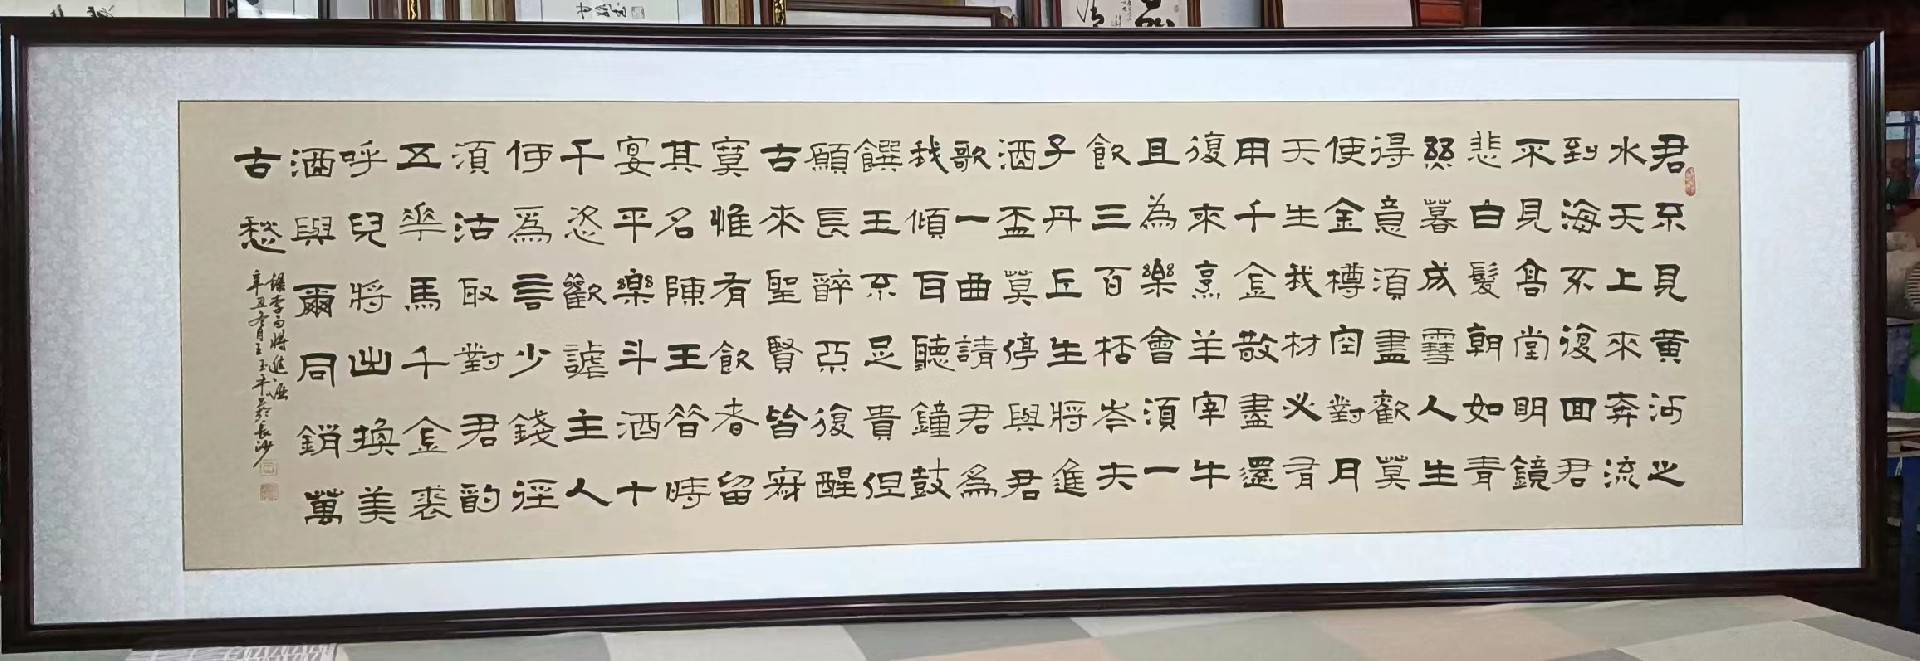 君不見黄河之
水天上來奔流
到海不復回君
不見高堂明鏡
悲白髮朝如青
絲暮成雪人生
得意須盡歡莫
使金樽空對月
天生我材必有
用千金散盡還
復來烹羊宰牛
且為樂會須一
飲三百桮岑夫
子丹丘生將進
酒盃莫停與君
歌一曲請君為
我傾耳聽鐘鼓
饌玉不足貴但
願長醉不復醒
古來聖賢皆寂
寞惟有飲者留
其名陳王昔時
宴平樂斗酒十
千恣歡謔主人
何爲言少錢徑
須沽取對君酌
五花馬千金裘
呼兒將出換美
酒與爾同銷萬
古愁
錄李白將進酒
辛丑夏月王玉平書於長沙